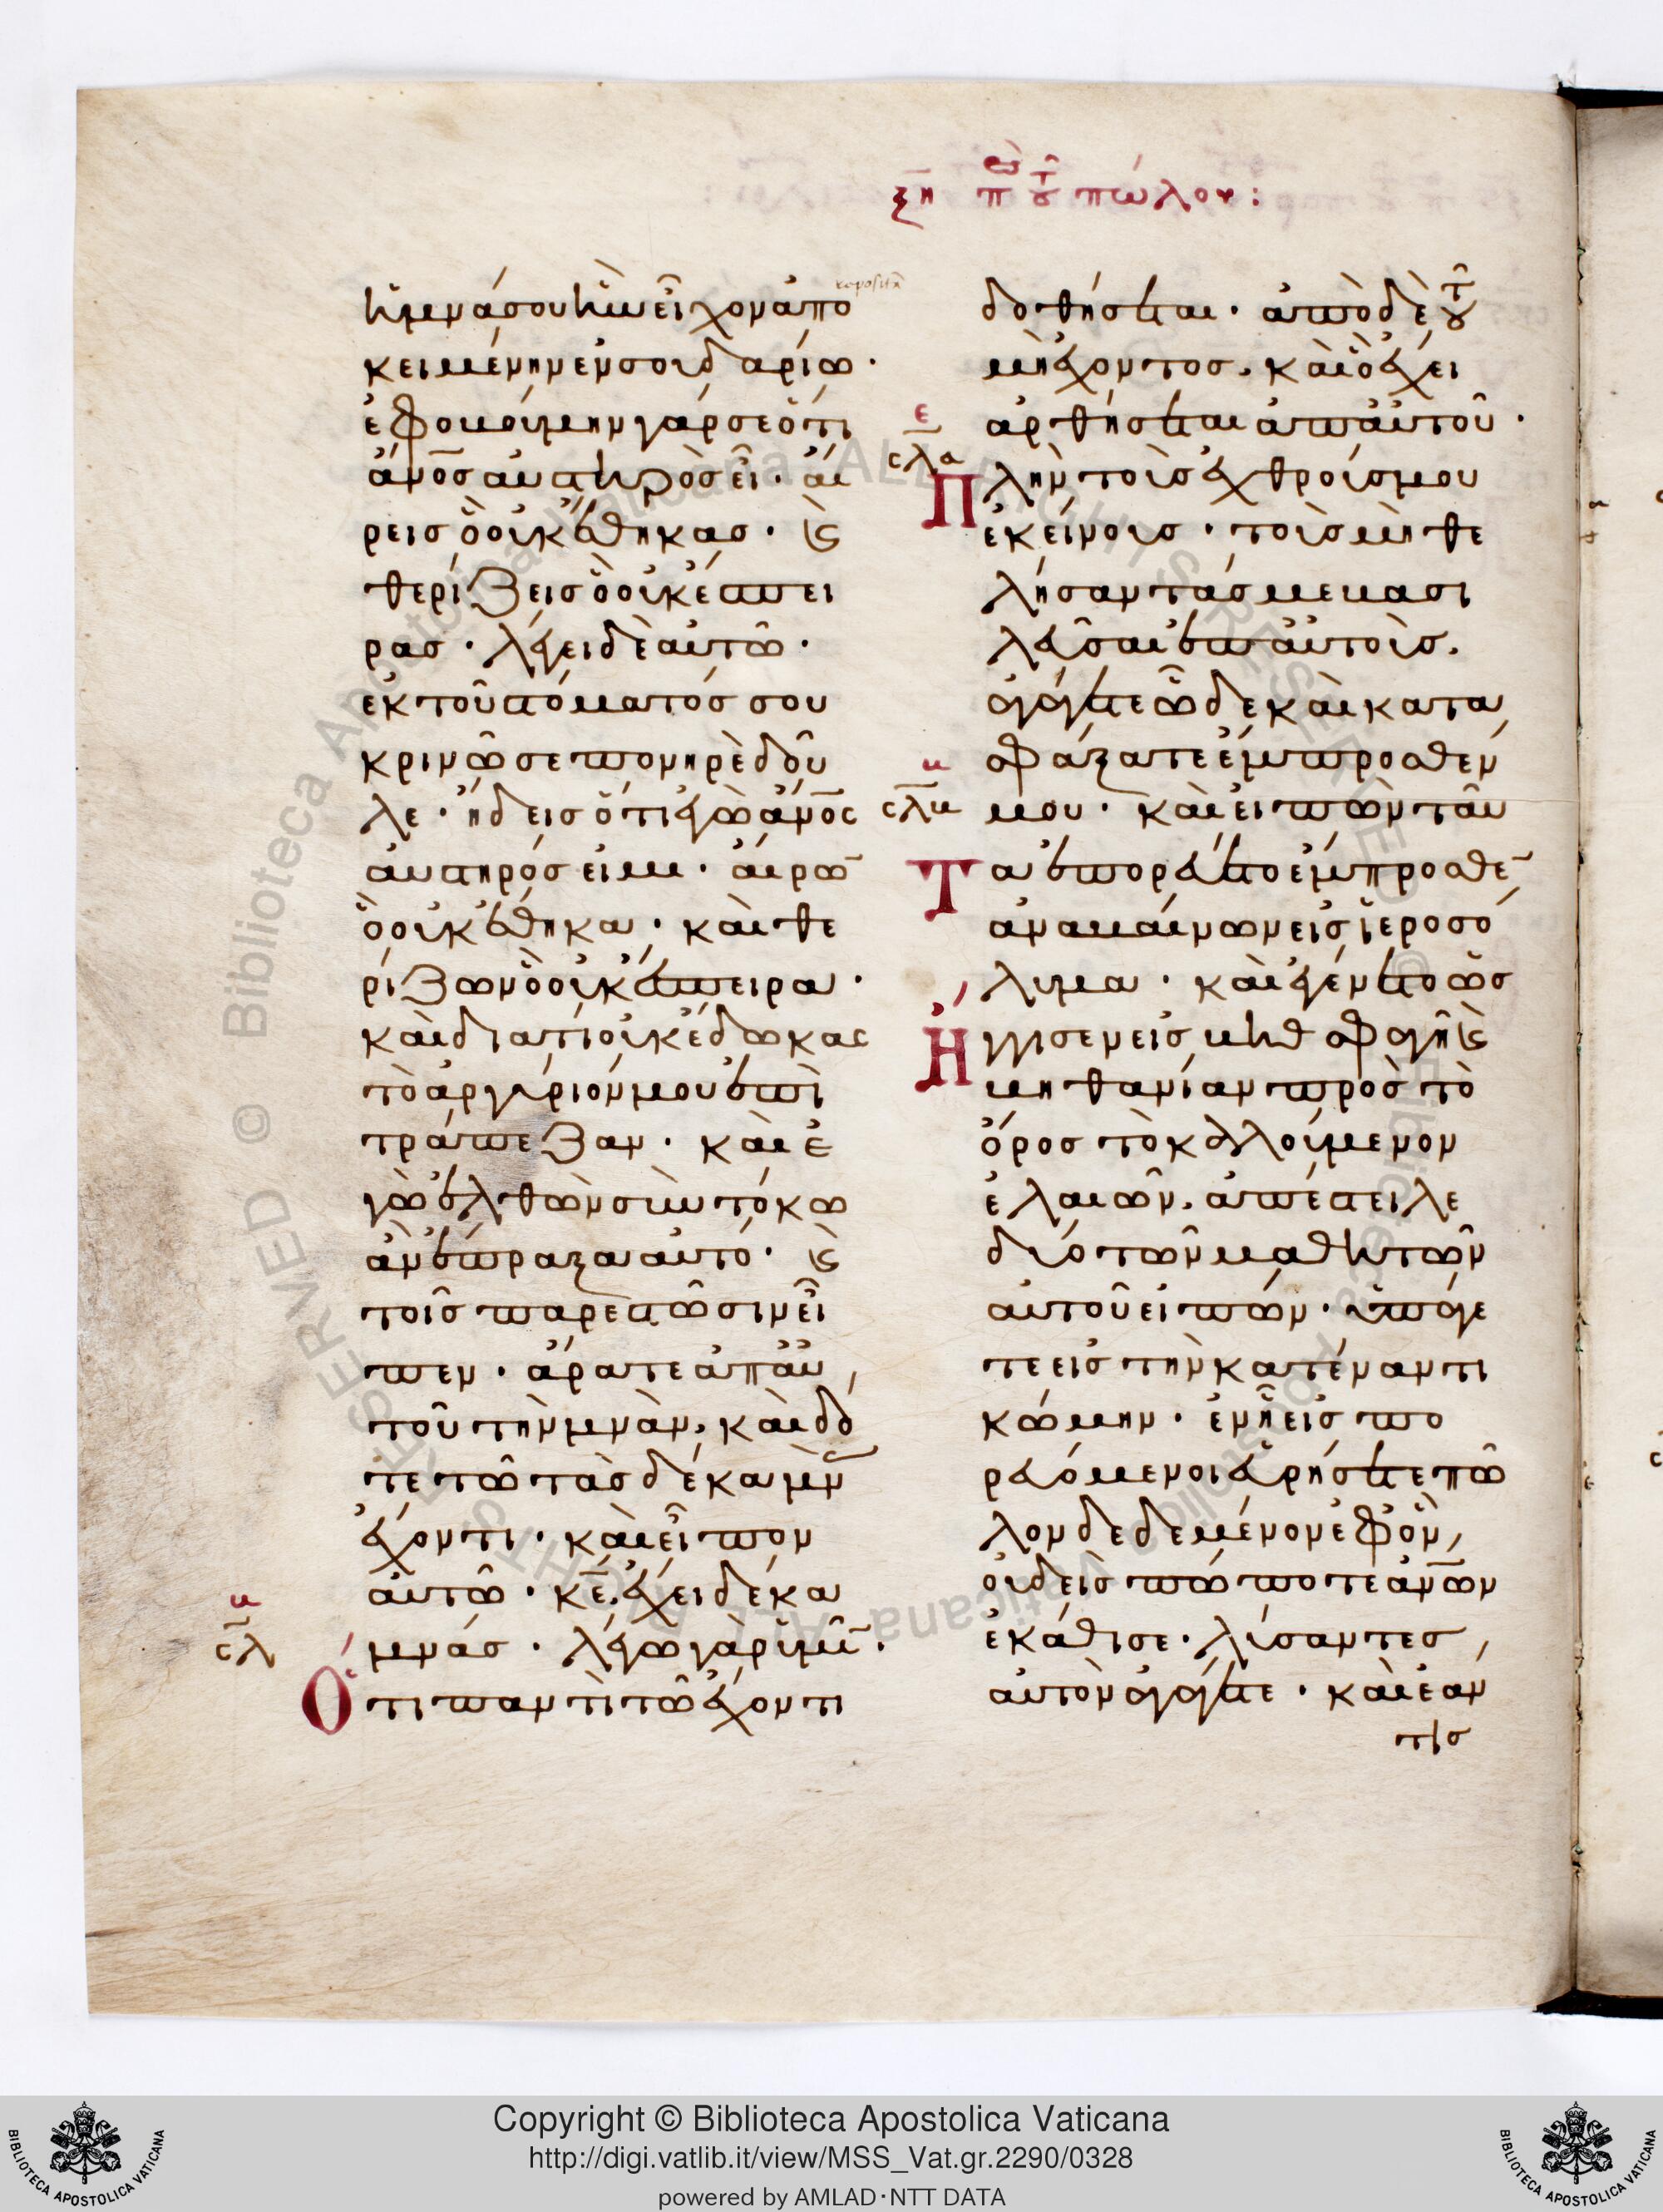 ξη πε τοῦ πώλου:
ἡ μνᾶ σου ἣν εἶχον ἀπο
κειμένην ἐν σουδαρίω·
ἐφοβούμην γάρ σε ὅτι
ἄνος αυστηρὸς εἶ· αἴ
ρεις ὃ οὐκ ἔθηκας· καὶ
θερίζεις ὃ οὐκ ἔσπει
ρας· λέγει δὲ αὐτῶ·
ἐκ τοῦ στόματός σου
κρινῶ σε πονηρὲ δοῦ
λε· ἤδεις ὅτι ἐγὼ ἄνος
αυστηρός εἰμι· αἴρω
ὃ οὐκ ἔθηκα· καὶ θε
ρίζων ὃ οὐκ ἔσπειρα·
καὶ διατί οὐκ ἔδωκας
τὸ ἀργύριόν μου ἐπὶ
τράπεζαν· καὶ ἐ
γὼ ἐλθὼν σὺν τόκω
ἂν ἔπραξα αὐτό· καὶ
τοῖς παρεστῶσιν εἶ
πεν· ἄρατε ἀπ αὐ
τοῦ τὴν μνᾶν, καὶ δό
τε τῶ τὰς δέκα μνᾶς
ἔχοντι· καὶ εἶπον
αὐτῶ· κε, ἔχει δέκα
μνᾶς· λέγω γὰρ ὑμῖν·
σλ
Ὅτι παντὶ τῶ ἔχοντι
δοθήσεται· ἀπὸ δὲ τοῦ
μὴ ἔχοντος, καὶ ὃ ἔχει
ἀρθήσεται ἀπ αὐτοῦ·
ε
σλα
Πλὴν τοὺς ἐχθρούς μου
ἐκείνους· τοὺς μὴ θε
λήσαντάς με βασι
λεῦσαι ἐπ αὐτοὺς,
ἀγάγετε ὧδε καὶ κατα
σφάξατε ἔμπροσθέν
β
σλβ
μου· καὶ εἰπὼν ταῦ
Τα ἐπορεύετο ἔμπροσθεν
ἀναβαίνων εἰς ἱεροσό
λυμα· καὶ ἐγένετο ὡς
Ἤγγισεν εἰς βηθσφαγῆ καὶ
βηθανίαν πρὸς τὸ
ὄρος τὸ καλούμενον
ἐλαιῶν, ἀπέστειλε
δύο τῶν μαθητῶν
αὐτοῦ εἰπών· ὑπάγε
τε εἰς τὴν κατέναντι
κώμην· ἐν ἧ εἰσπο
ρευόμενοι εὑρήσετε πῶ
λον δεδεμένον ἐφ ὃν,
οὐδεὶς πώποτε ἀνων
ἐκάθισε· λύσαντες,
αὐτὸν ἀγάγετε· καὶ ἐάν
τις
Copyright © Biblioteca Apostolica Vaticana
http://digi.vatlib.it/view/MSS_Vat.gr.2290/0328
powered by AMLAD·NTT DATA
BIBLIOTECA APOSTOLICA VATICANA
BIBLIOTECA APOSTOLICA VATICANA